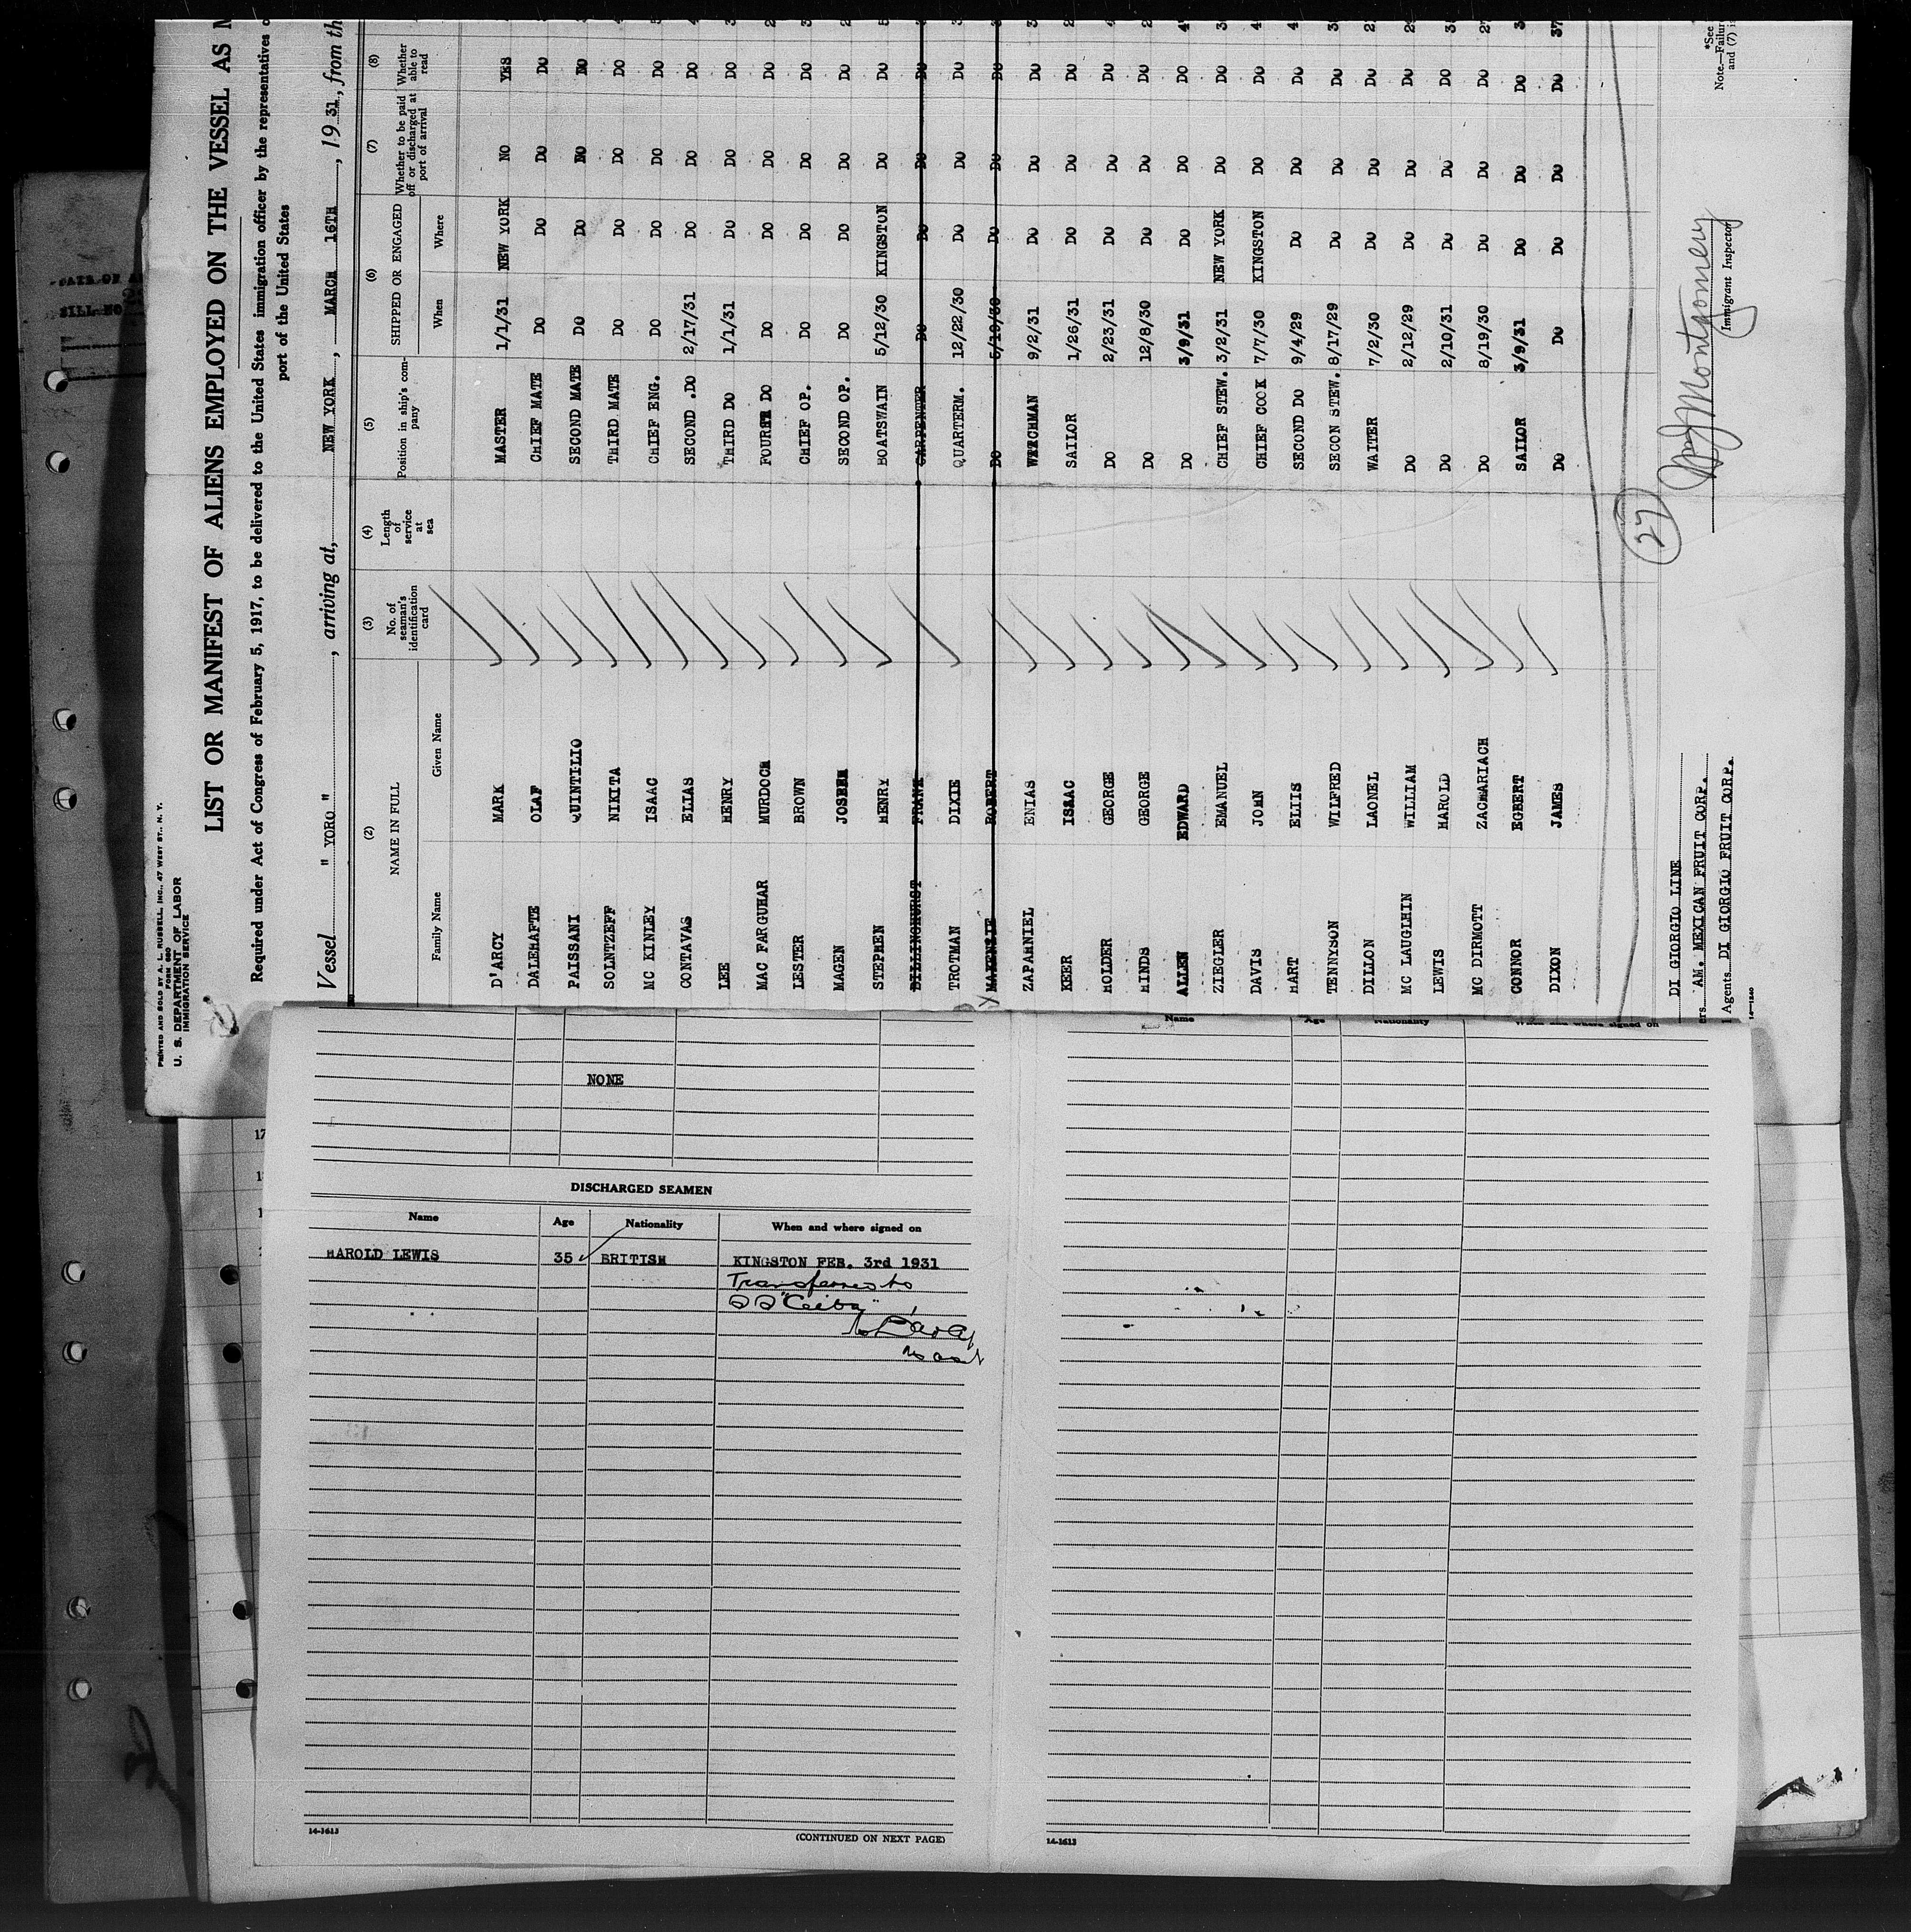 PRINTED AND SOLD BY A. L. RUSSELL, INC., 47 WEST ST., N. Y.
FORM 680
U. S. DEPARTMENT OF LABOR
IMMIGRATION SERVICE
LIST OR MANIFEST OF ALIENS EMPLOYED ON THE VESSEL AS
Required under Act of Congress of February 5, 1917, to be delivered to the United States immigration officer by the representatives
port of the United States
Vessel " YORO ", arriving at, NEW YORK, MARCH 16TH, 1931, from th
(2) (3) (4) (5) (6) (7) (8)
NAME IN FULL No. of seaman's identification card Length of service at sea Position in ship's company SHIPPED OR ENGAGED Whether to be paid off or discharged at port of arrival Whether able to read
Family Name Given Name When Where
D'ARCY MARK MASTER 1/1/31 NEW YORK NO YES
DALEHAFTE OLAF CHIEF MATE DO DO DO DO
PAISSANI QUINTILIO SECOND MATE DO DO NO NO
SOLNTZEFF NIKITA THIRD MATE DO DO DO DO
MC KINLEY ISAAC CHIEF ENG. DO DO DO DO
CONTAVAS ELIAS SECOND .DO 2/17/31 DO DO DO
LEE HENRY THIRD DO 1/1/31 DO DO DO
MAC FARGUHAR MURDOCH DO DO DO DO DO
LESTER BROWN CHIEF OP. DO DO DO DO
MAGEN JOSEPH SECOND OP. DO DO DO DO
STEPHEN HENRY BOATSWAIN 5/12/30 KINGSTON DO DO
DILLINGHURST FRANK CARPENTER DO DO DO DO
TROTMAN DIXIE QUARTERM. 12/22/30 DO DO DO
MAKENZIE ROBERT DO 5/19/30 DO DO DO
ZAPAHNIEL ENIAS WATCHMAN 9/2/31 DO DO DO
KEER ISAAC SAILOR 1/26/31 DO DO DO
HOLDER GEORGE DO 2/23/31 DO DO DO
HINDS GEORGE DO 12/8/30 DO DO DO
ALLEN EDWARD DO 3/9/31 DO DO DO
ZIEGLER EMANUEL CHIEF STEW. 3/2/31 NEW YORK DO DO
DAVIS JOHN CHIEF COOK 7/7/30 KINGSTON DO DO
HART ELIIS SECOND DO 9/4/29 DO DO DO
TENNYSON WILFRED SECON STEW. 8/17/29 DO DO DO
DILLON LAONEL WAITER 7/2/30 DO DO DO
MC LAUGLHIN WILLIAM DO 2/12/29 DO DO DO
LEWIS HAROLD DO 2/10/31 DO DO DO
MC DIRMOTT ZACHARIACH DO 8/19/30 DO DO DO
CONNOR EGBERT SAILOR 3/9/31 DO DO DO
DIXON JAMES DO DO DO DO DO
27
Montgomery
Immigrant Inspector
DI GIORGIO LINE
AM. MEXICAN FRUIT CORP.
Agents DI GIORGIO FRUIT CORP.
14—1240
*See
Note.—Failur
and (7) i
NONE
DISCHARGED SEAMEN
Name Age Nationality When and where signed on
HAROLD LEWIS 35 BRITISH KINGSTON FEB. 3rd 1931
Transferred to
SS "Ceiba"
14-1613
(CONTINUED ON NEXT PAGE)
Name Age Nationality When and where signed on
14-1613